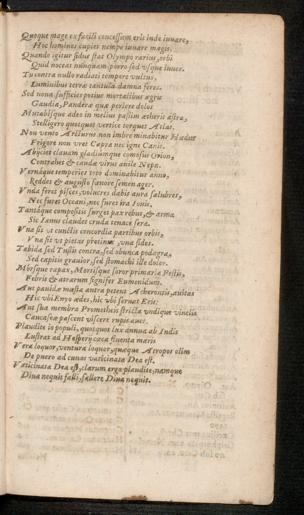 Quoque mage ex facili concessum erit inde iuuare,
Hoc homines cupies nempe iuuare magis.
Quando igitur sidus stat Olympo rarius, orbi
Quid noceat nunquam porro sed usque iuuet.
Tu contra nullo radiati tempore vultus,
Luminibus terræ tantula damna feres.
Sed noua sufficies potius mortalibus ægris
Gaudia, Pandoræ quæ periere dolos
Mutabisque ades in melius passim ætheris astra,
Stelligero quotquot vertice torquet Atlas.
Non vento Arcturus non imbre minabitur Hædus
Frigore non vret Capra nec igne Canis.
Abijciet clauam gladiumque comosus Orion,
Contrahet & cauda virus anile Nepa.
Vernáque temperies toto dominabitur anno,
Reddet & augusto fænore semen ager.
Vnda feret pisces, volucres dabit aura salubres,
Nec fures Oceani, nec fures ira Iouis,
Tantáque compositis surget pax rebus, & arma
Sic Ianus claudet cruda tenace sera.
Vna sit vt cunctis concordia partibus orbis,
Vna sit vt pietas protinus, vna fides.
Tabida sed Tussis contra, sed obunca podagra,
Sed capitis grauior, sed stomachi ille dolor.
Morsque rapax, Mortisque soror primaria Pestis,
Febris & atrarum signifer Eumenidum.
Aut pauidæ mæsta antra petent Acherontis, auitas
Hic vbi Enyo ædes, hic vbi seruat Erit:
Aut sua membra Promethæis stricta vndique vinclis
Caucaseæ pascent viscere rupis aues.
Plaudite io populi, quotquot lux annua ab Indis
Lustrat ad Hesperij cæca fluenta maris
Vera loquor, ventura loquor, quæque Atropos olim
De puero ad cunas vaticinata Dea est.
Vaticinata Dea est, clarum ergo plaudite, namque
Diua nequit falli, fallere Diua nequit.